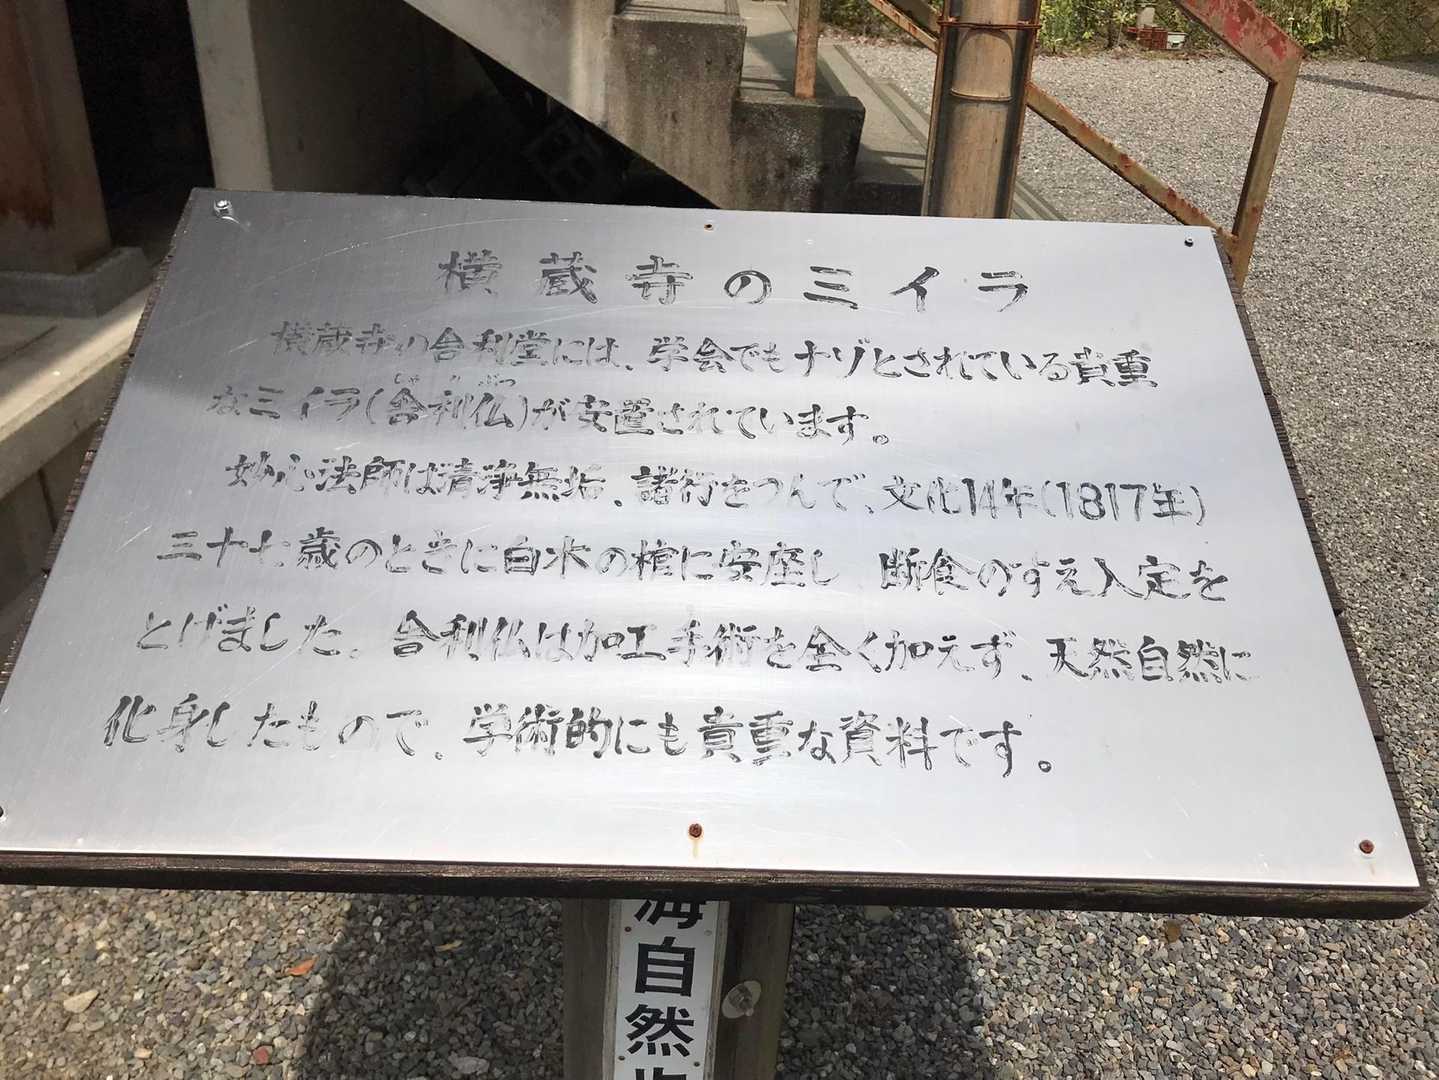 横蔵寺のミイラ
横蔵寺の舎利堂には、学会でもナゾとされている貴重
なミイラ(舎利仏)が安置されています。
しゃりぶつ
妙心法師は清浄無垢、諸行をつんで、文化14年(1817年)
三十七歳のときに白木の棺に安座し 断食のすえ入定を
とげました。舎利仏は加工手術を全く加えず、天然自然に
化身したもので、学術的にも貴重な資料です。
海自然歩